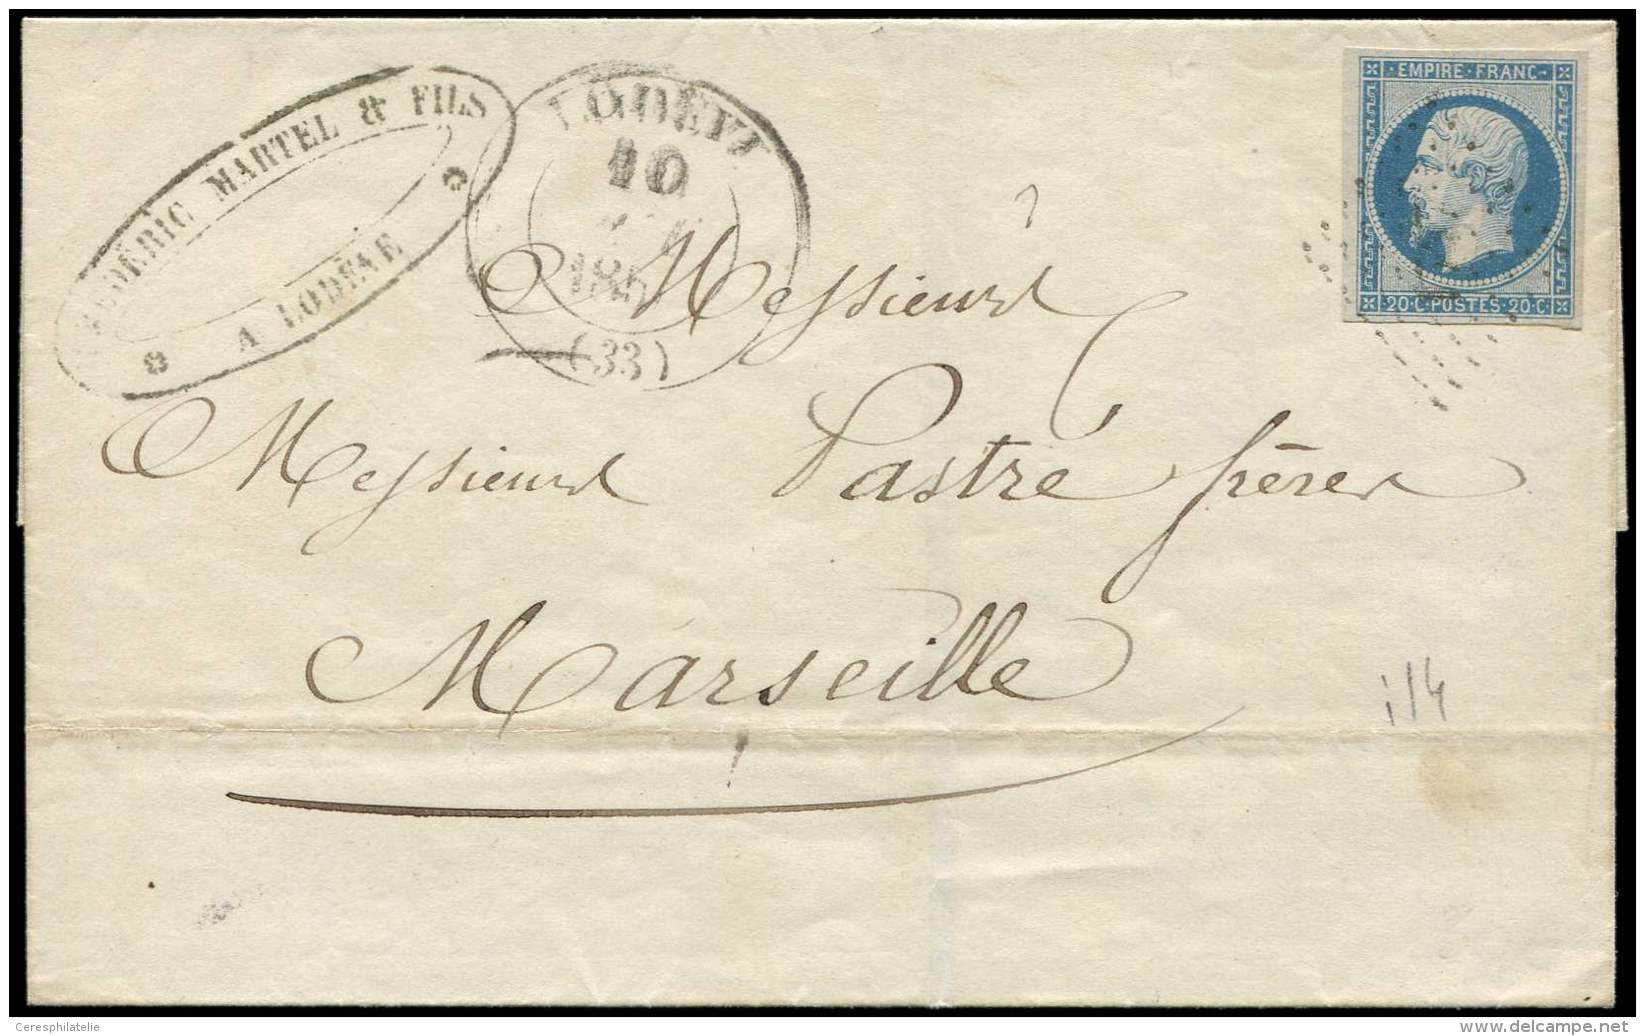 FRÉDÉRIC MARTEL & FILS
A LODÈVE
LODÈVE
10
185
(33)
EMPIRE · FRANC ·
20 · C · POSTES · 20 · C ·
Messieurs
Messieurs Pastré frères
Marseille
114
Ceresphilatelie
www.delcampe.net